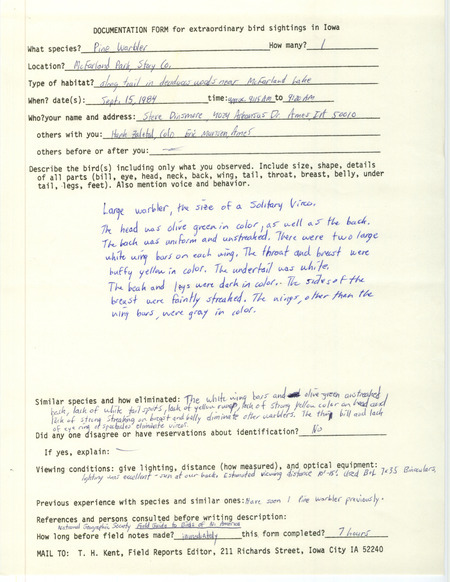 DOCUMENTATION FORM for extraordinary bird sightings in Iowa
What species? Pine Warbler How many? 1
Location? McFarland Park, Story Co.
Type of habitat? along trail in deciduous woods near McFarland Lake
When? date(s): Sept. 15, 1984 time: approx. 9:15 AM to 9:20 AM
Who? your name and address: Steve Dinsmore 4024 Arkansas Dr. Ames IA 50010
others with you: Hank Zaletel, Colo Eric Munson, Ames
others before or after you: —
Describe the bird(s) including only what you observed. Include size, shape, details
of all parts (bill, eye, head, neck, back, wing, tail, throat, breast, belly, under
tail, legs, feet). Also mention voice and behavior.
Large warbler, the size of a Solitary Vireo.
The head was olive green in color, as well as the back.
The back was uniform and unstreaked. There were two large
white wing bars on each wing. The throat and breast were
buffy yellow in color. The undertail was white.
The beak and legs were dark in color. The sides of the
breast were faintly streaked. The wings, other than the
wing bars, were gray in color.
Similar species and how eliminated: The white wing bars and olive green unstreaked
back, lack of white tail spots, lack of yellow rump, lack of strong yellow color on head and
lack of strong streaking on breast and belly eliminate other warblers. The thin bill and lack
of eye ring or spectacles eliminate vireos.
Did any one disagree or have reservations about identification? No
If yes, explain: —
Viewing conditions: give lighting, distance (how measured), and optical equipment:
lighting was excellent - sun at our backs. Estimated viewing distance 10'-15'. Used B+L 7x35 Binoculars.
Previous experience with species and similar ones: Have seen 1 Pine Warbler previously.
References and persons consulted before writing description:
National Geographic Society Field Guide to Birds of N. America
How long before field notes made? immediately this form completed? 7 hours
MAIL TO: T. H. Kent, Field Reports Editor, 211 Richards Street, Iowa City IA 52240